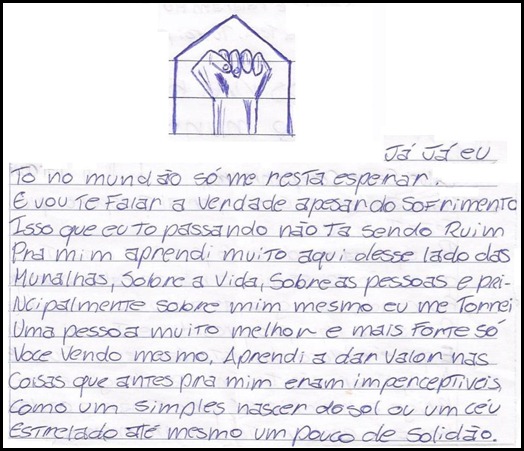 Já Já eu
Tô no mundão só me resta esperar.
E vou te falar a verdade apesar do sofrimento
Isso que eu to passando não ta sendo Ruim
Pra mim aprendi muito aqui desse lado das
Muralhas, Sobre a Vida, Sobre as pessoas e prei-
Ncipalmente sobre mim mesmo eu me Tornei
Uma pessoa muito melhor e mais Forte só
Voce Vendo mesmo. Aprendi a dar Valor nas
Coisas que antes pra mim eram imperceptiveis
Como um simples nascer do sol ou um céu
estrelado até mesmo um pouco de solidão.